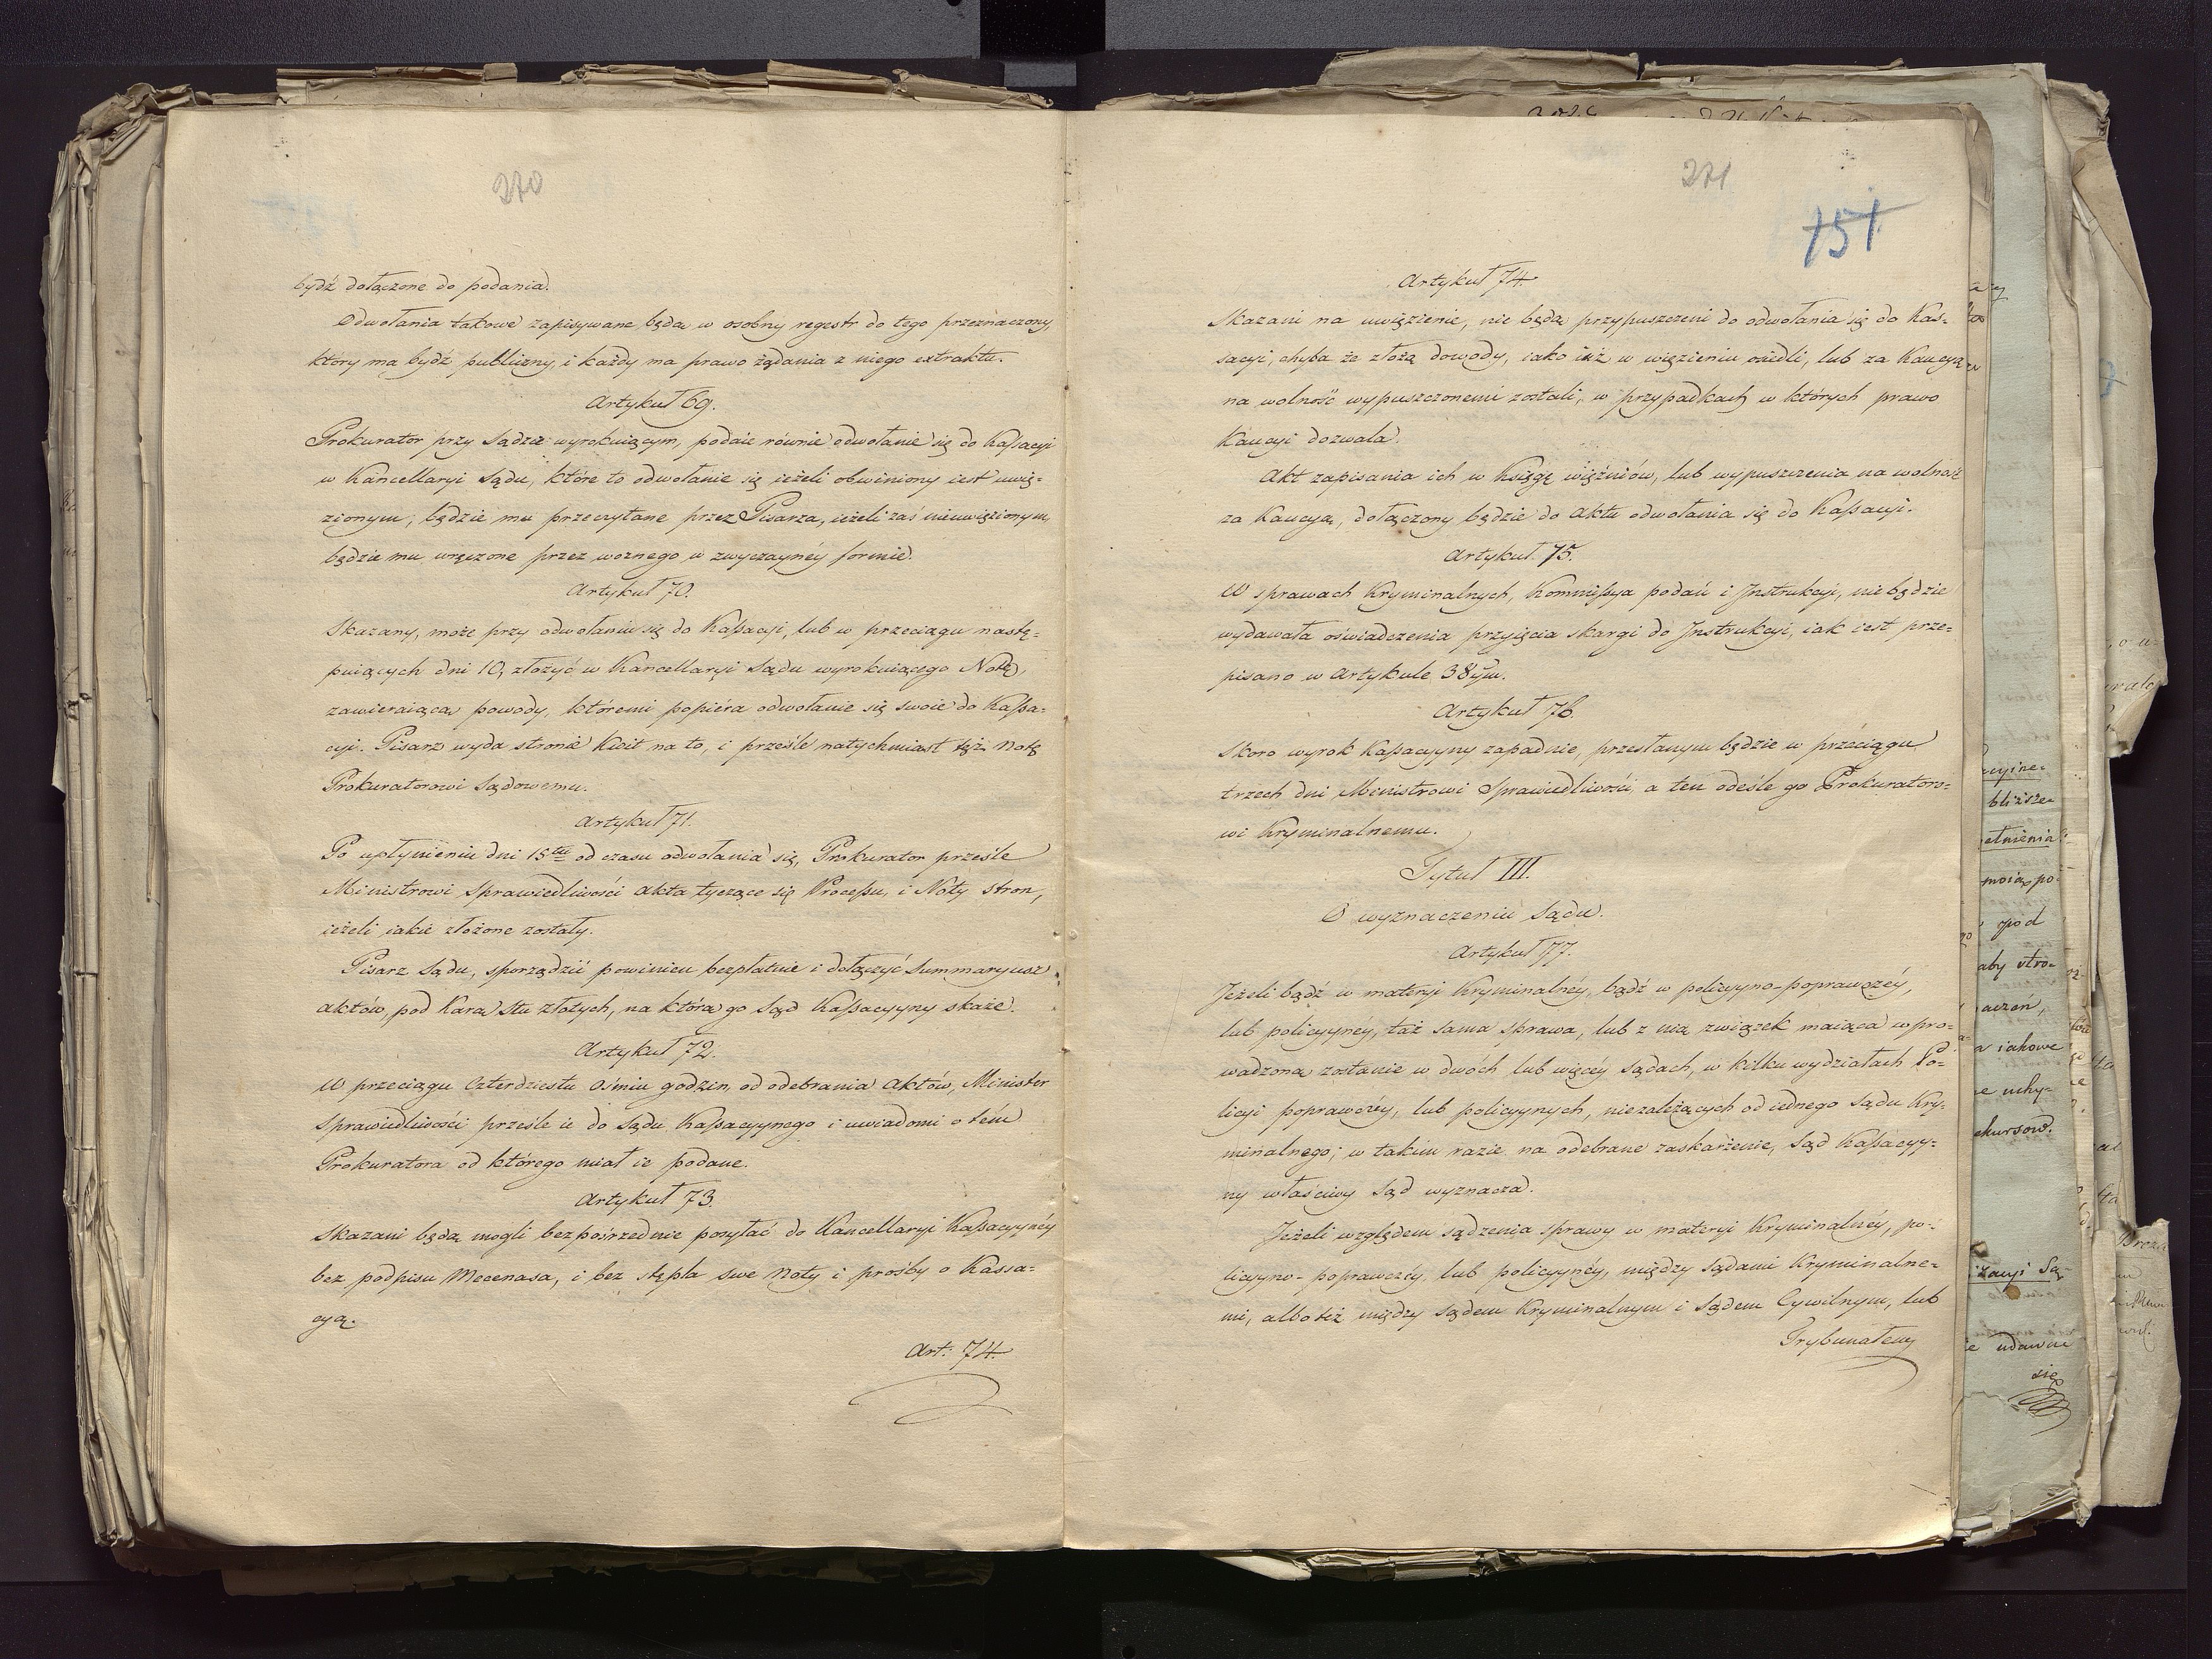 270
bydź dołączone do podania.
Odwołania takowe zapisywane będą w osobny regestr do tego przeznaczony,
który ma bydź publiczny, i każdy ma prawo żądania z niego extraktu.
Artykuł 69.
Prokurator przy Sądzie wyrokuiącym, podaie równie odwołanie się do Kaſsacyi
w Kancellaryi Sądu, które to odwołanie się ieżeli obwiniony iest uwię=
zionym, będzie mu przeczytane przez Pisarza, ieżeli zaś nieuwięzionym,
będzie mu wręczone przez woznego w zwyczaynéy formie.
Artykuł 70.
Skazany, może przy odwołaniu się do Kaſsacyi, lub w przeciągu nastę=
puiących dni 10, złożyć w Kancellaryi Sądu wyrokuiącego Notę,
zawieraiącą powody, któremi popiéra odwołanie się swoie do Kaſsa=
cyi. Pisarz wyda stronie kwit na to, i prześle natychmiast też Notę
Prokuratorowi Sądowemu.
Artykuł 71.
Po upłynieniu dni 15tu od czasu odwołania się, Prokurator prześle
Ministrowi Sprawiedliwości akta tyczące się Proceſsu, i Noty stron,
ieżeli iakie złożone zostały.
Pisarz Sądu, sporządzić powinien bezpłatnie i dołączyć Summaryusz
aktów, pod karą stu złotych, na którą go Sąd Kaſsacyyny skaże.
Artykuł 72.
W przeciągu Czterdziestu Ośmiu godzin od odebrania aktów, Minister
Sprawiedliwości prześle ie do Sądu Kaſsacyynego i uwiadomi o tém
Prokuratora od którego miał ie podane.
Artykuł 73.
Skazani będą mogli bezpośrzednie posyłać do Kancellaryi Kaſsacyynéy
bez podpisu Mecenasa, i bez stępla swe Noty i prośby o Kassa=
cyą.
Art: 74.
271
151
Artykuł 74.
Skazani na uwięzienie, nie będą przypuszczeni do odwołania się do Kas=
sacyi, chyba że złożą dowody, iako iuż w więzieniu osiedli, lub za Kaucyą
na wolność wypuszczonemi zostali, w przypadkach w których prawo
Kaucyi dozwala.
Akt zapisania ich w Księgę więźniów, lub wypuszczenia na wolność
za Kaucyą, dołączony będzie do aktu odwołania się do Kaſsacyi.
Artykuł 75.
W sprawach Kryminalnych, Kommiſsya podań i Jnstrukcyi, nie będzie
wydawała oświadczenia przyięcia skargi do Jnstrukcyi, iak iest prze=
pisano w Artykule 38ym.
Artykuł 76.
Skoro wyrok Kaſsacyyny zapadnie, przesłanym będzie w przeciągu
trzech dni Ministrowi Sprawiedliwości, a ten odeśle go Prokuratoro=
wi Kryminalnemu.
Tytuł III.
O wyznaczeniu Sądu.
Artykuł 77.
Jeżeli bądź w materyi Kryminalnéy, bądź w policyyno-poprawczéy,
lub policyyney, taż sama sprawa, lub z nią związek maiąca wpro=
wadzona zostanie w dwóch lub więcéy Sądach, w kilku wydziałach Po=
licyi poprawczéy, lub policyynych, niezależących od iednego Sądu Kry=
minalnego; w takim razie na odebrane zaskarżenie, Sąd Kaſsacyy=
ny właściwy Sąd wyznacza.
Jeżeli względem sądzenia sprawy w materyi Kryminalnéy, po=
licyyno-poprawczéy, lub policyynéy, między Sądami Kryminalne=
mi, albo też między Sądem Kryminalnym i Sądem Cywilnym, lub
Trybunałem